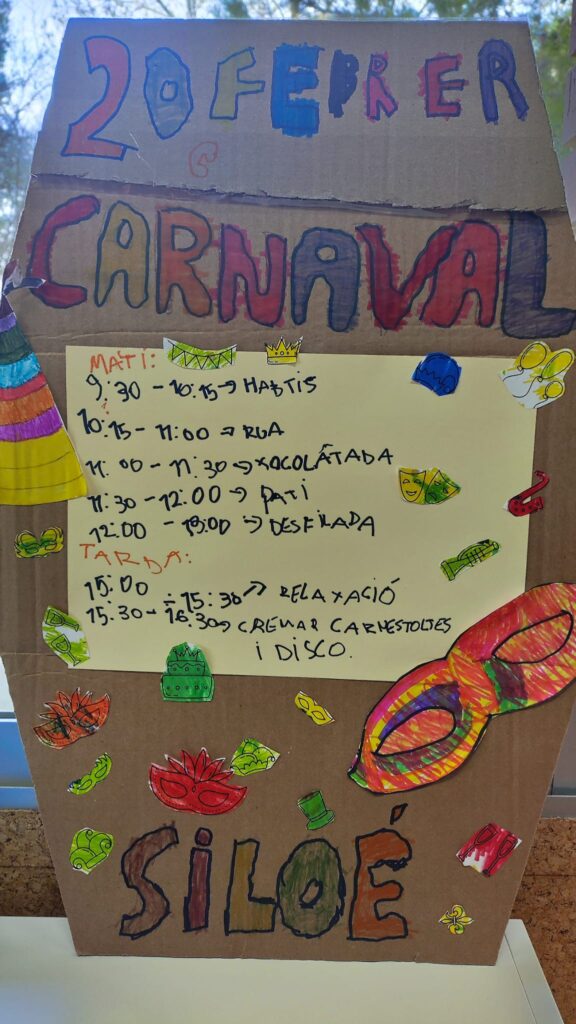 20 FEBRER
CARNAVAL
MATÍ:
9:30 - 10:15 → HÀBTIS
10:15 - 11:00 → RUA
11:00 - 11:30 → XOCOLÀTADA
11:30 - 12:00 → PATI
12:00 - 13:00 → DESFILADA
TARDA:
15:00 - 15:30 → RELAXACIÓ
15:30 - 16:30 → CREMAR CARNESTOLTES
I DISCO.
SILOÉ